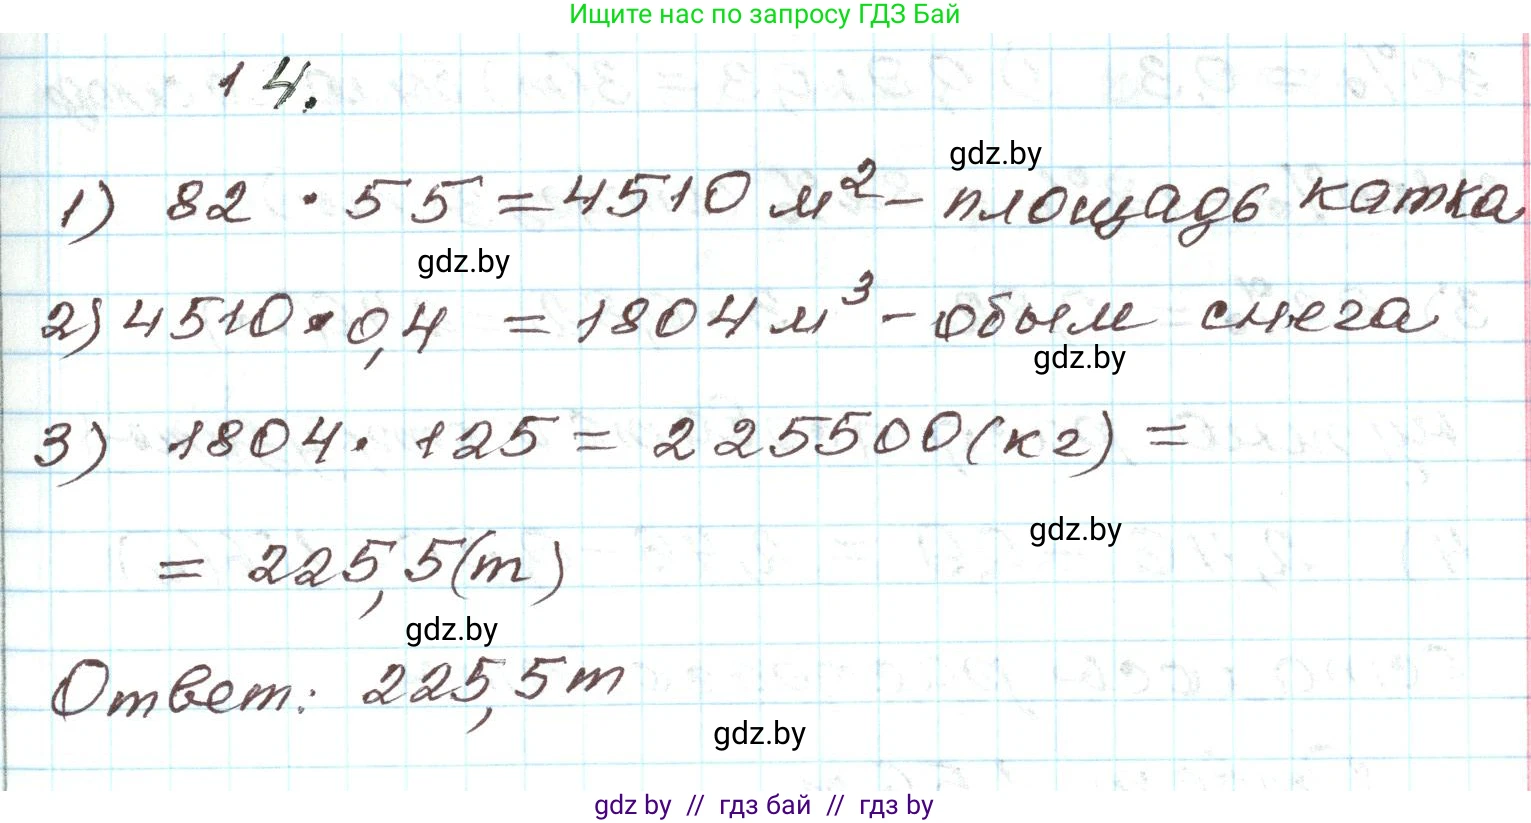 Ищите нас по запросу ГДЗ Бай
14.
gdz.by
1) 82 · 55 = 4510 м² - площадь катка
gdz.by
2) 4510 · 0,4 = 1804 м³ - обым снега
gdz.by
3) 1804 · 125 = 225500 (кг) =
gdz.by
= 225,5 (т)
gdz.by
Ответ: 225,5 т
gdz.by
gdz by // гдз бай // гдз by